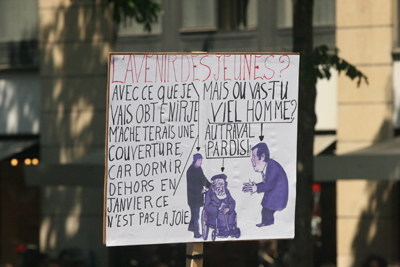 L'AVENIR DES JEUNES?
AVEC CE QUE JE
VAIS OBTENIR JE
M'ACHETERAIS UNE
COUVERTURE,
CAR DORMIR
DEHORS EN
JANVIER CE
N'EST PAS LA JOIE
MAIS OU VAS-TU
VIEL HOMME?
AU TRAVAIL
PARDIS!